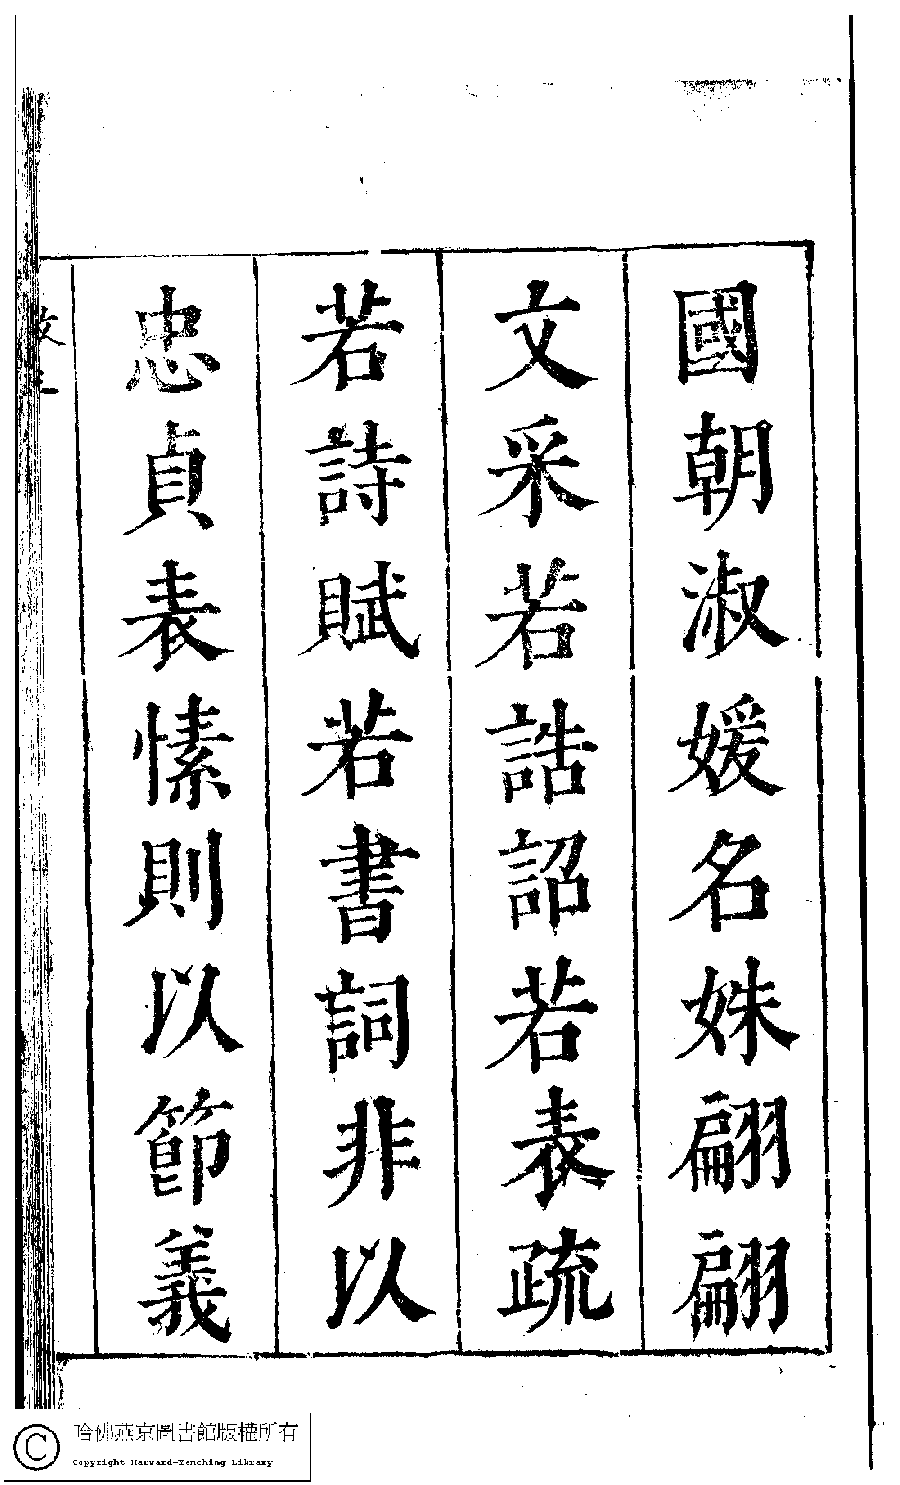 國朝淑媛名姝翩翩
文采若誥詔若表疏
若詩賦若書詞非以
忠貞表愫則以節義
哈佛燕京圖書館版權所有
Copyright Harvard-Yenching Library